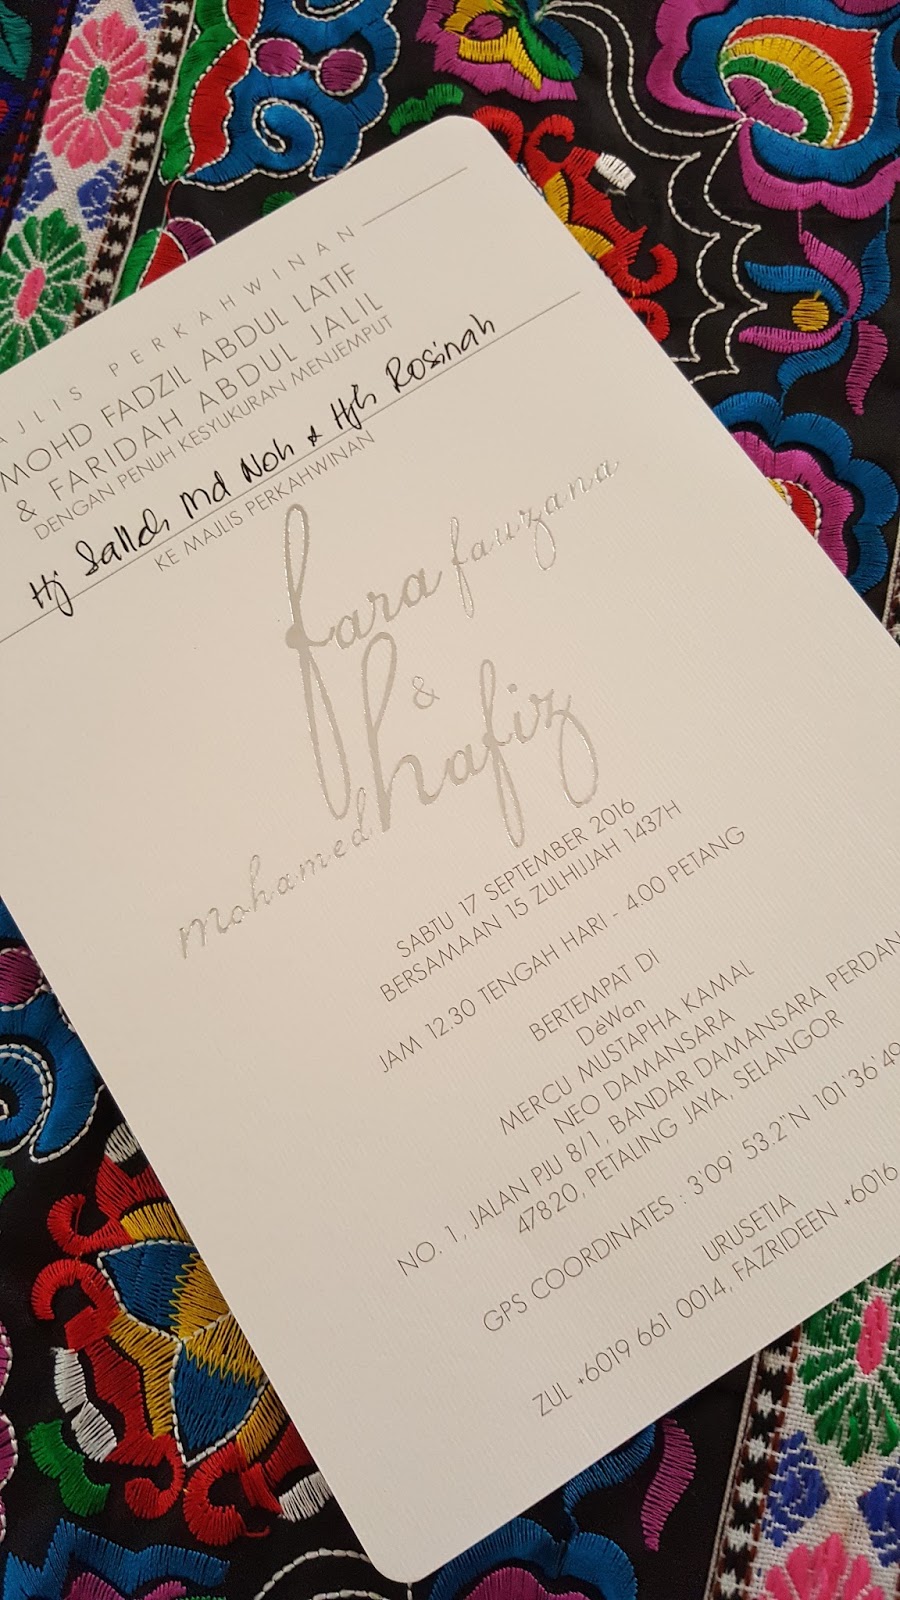 AJLIS PERKAHWINAN
MOHD FADZIL ABDUL LATIF
& FARIDAH ABDUL JALIL
DENGAN PENUH KESYUKURAN MENJEMPUT
Hj Salleh Md Noh & Hjh Rosinah
KE MAJLIS PERKAHWINAN
fara fauzana
&
mohamed hafiz
SABTU 17 SEPTEMBER 2016
BERSAMAAN 15 ZULHIJJAH 1437H
JAM 12.30 TENGAH HARI - 4.00 PETANG
BERTEMPAT DI
DéWan
MERCU MUSTAPHA KAMAL
NEO DAMANSARA
NO. 1, JALAN PJU 8/1, BANDAR DAMANSARA PERDAN
47820, PETALING JAYA, SELANGOR
GPS COORDINATES : 3°09' 53.2"N 101°36'49
URUSETIA
ZUL +6019 661 0014, FAZRIDEEN +6016